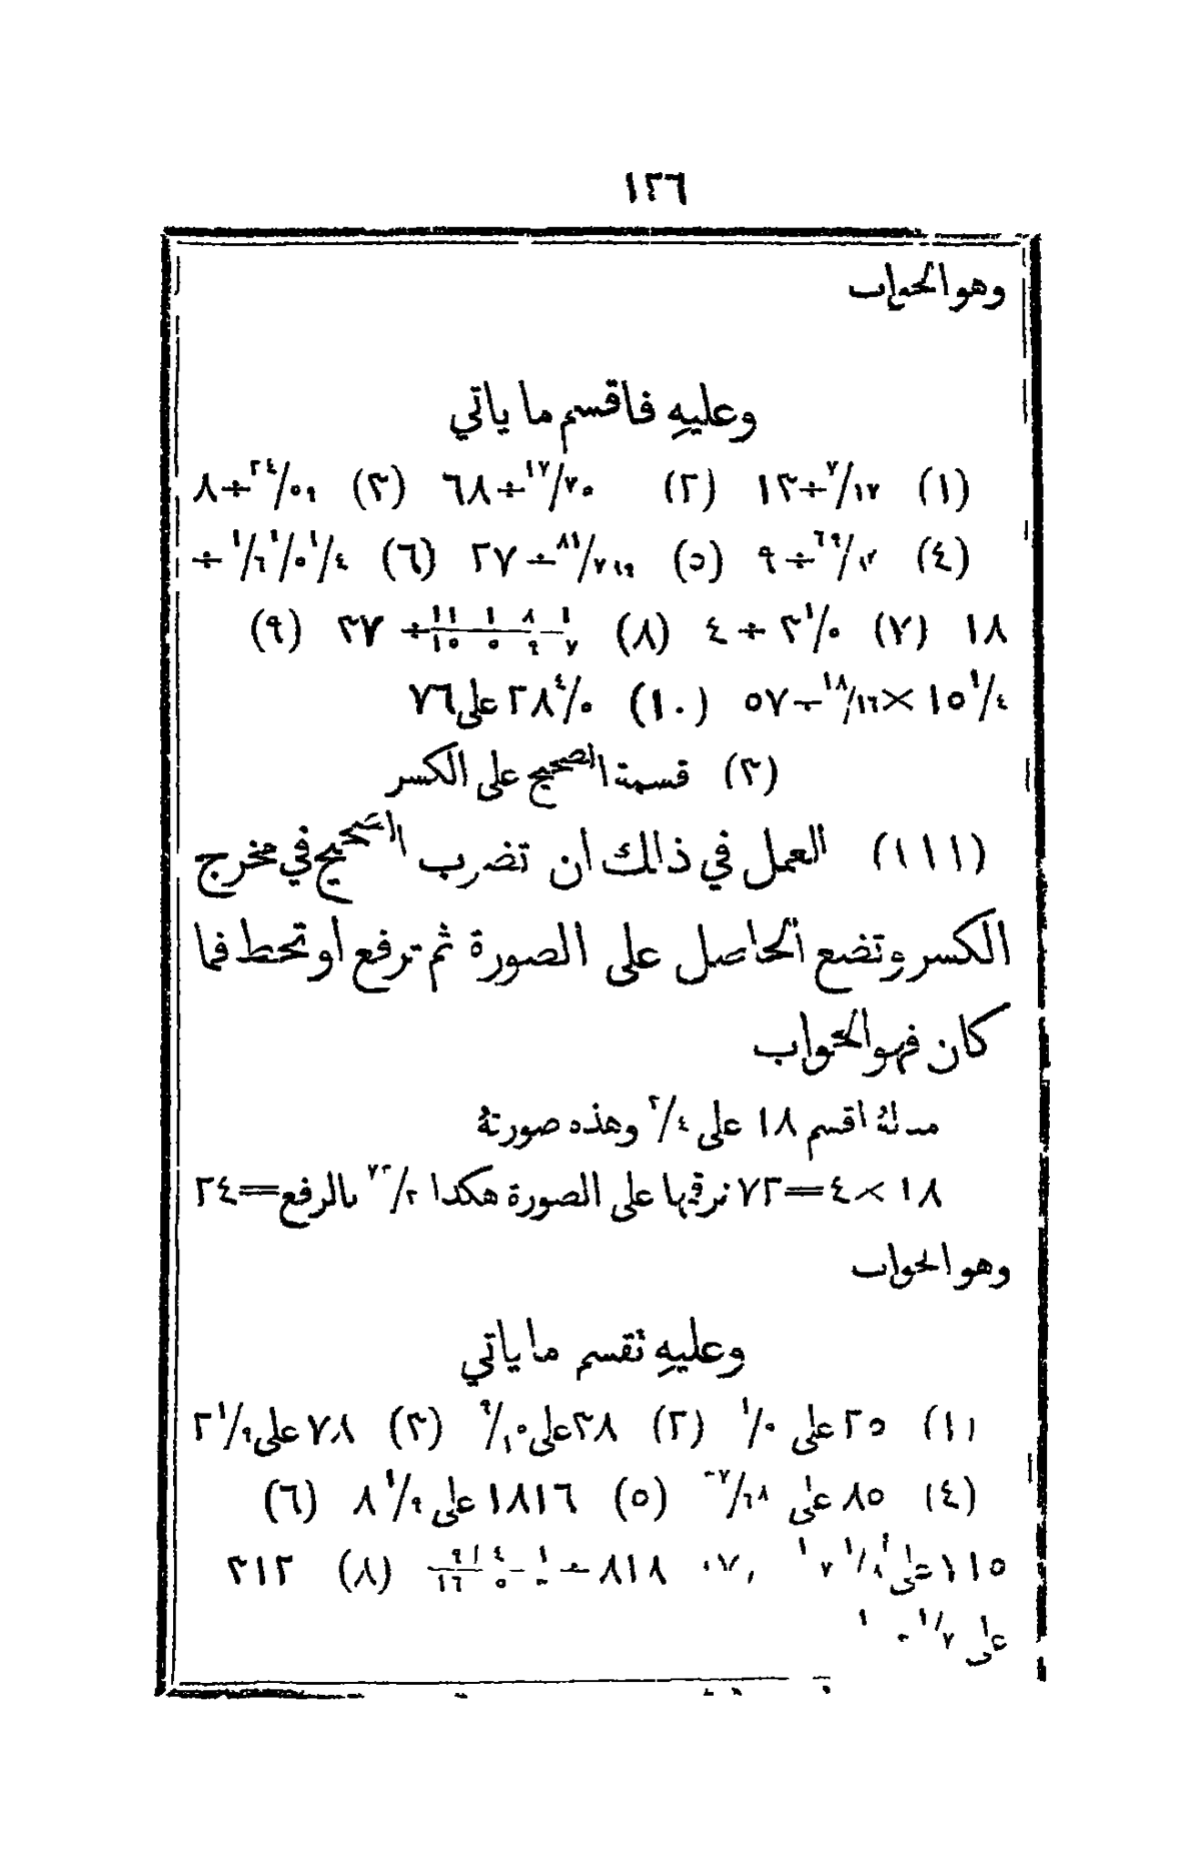 ١٢٦
وهو الجواب
وعليهِ فاقسم ما ياتي
(١) ٧/١٢ ÷ ١٣ (٢) ١٧/٢٥ ÷ ٦٨ (٣) ٢٤/٥٩ ÷ ٨
(٤) ٦٩/١٢ ÷ ٩ (٥) ٨١/٧١٩ ÷ ٢٧ (٦) ١/٤ ١/٥ ١/٦ ÷
١٨ (٧) ٣ ١/٥ ÷ ٤ (٨) ÷ ٣٧ (٩)
١٥ ١/٤ × ١٨/١٦ ÷ ٥٧ (١٠) ٢٨٤ ٤/٥ على ٧٦
(٣) قسمة الصحيح على الكسر
(١١١) العمل في ذلك ان تضرب الصحيح في مخرج
الكسر وتضع الحاصل على الصورة ثم ترفع او تحط فما
كان فهو الجواب
مثلهُ اقسم ١٨ على ٣/٤ وهذه صورتهُ
١٨ × ٤ = ٧٢ نرقيها على الصورة هكذا ٧٢/٣ بالرفع = ٢٤
وهو الجواب
وعليهِ نقسم ما ياتي
(١) ٢٥ على ١/٥ (٢) ٣٨ على ٩/١٠ (٣) ٧٨ على ٢ ١/٩
(٤) ٨٥ على (٥) ١٨١٦ على ٨ ١/٩ (٦)
١١٥ على ٨١٨ ÷ (٨) ٣١٢
على